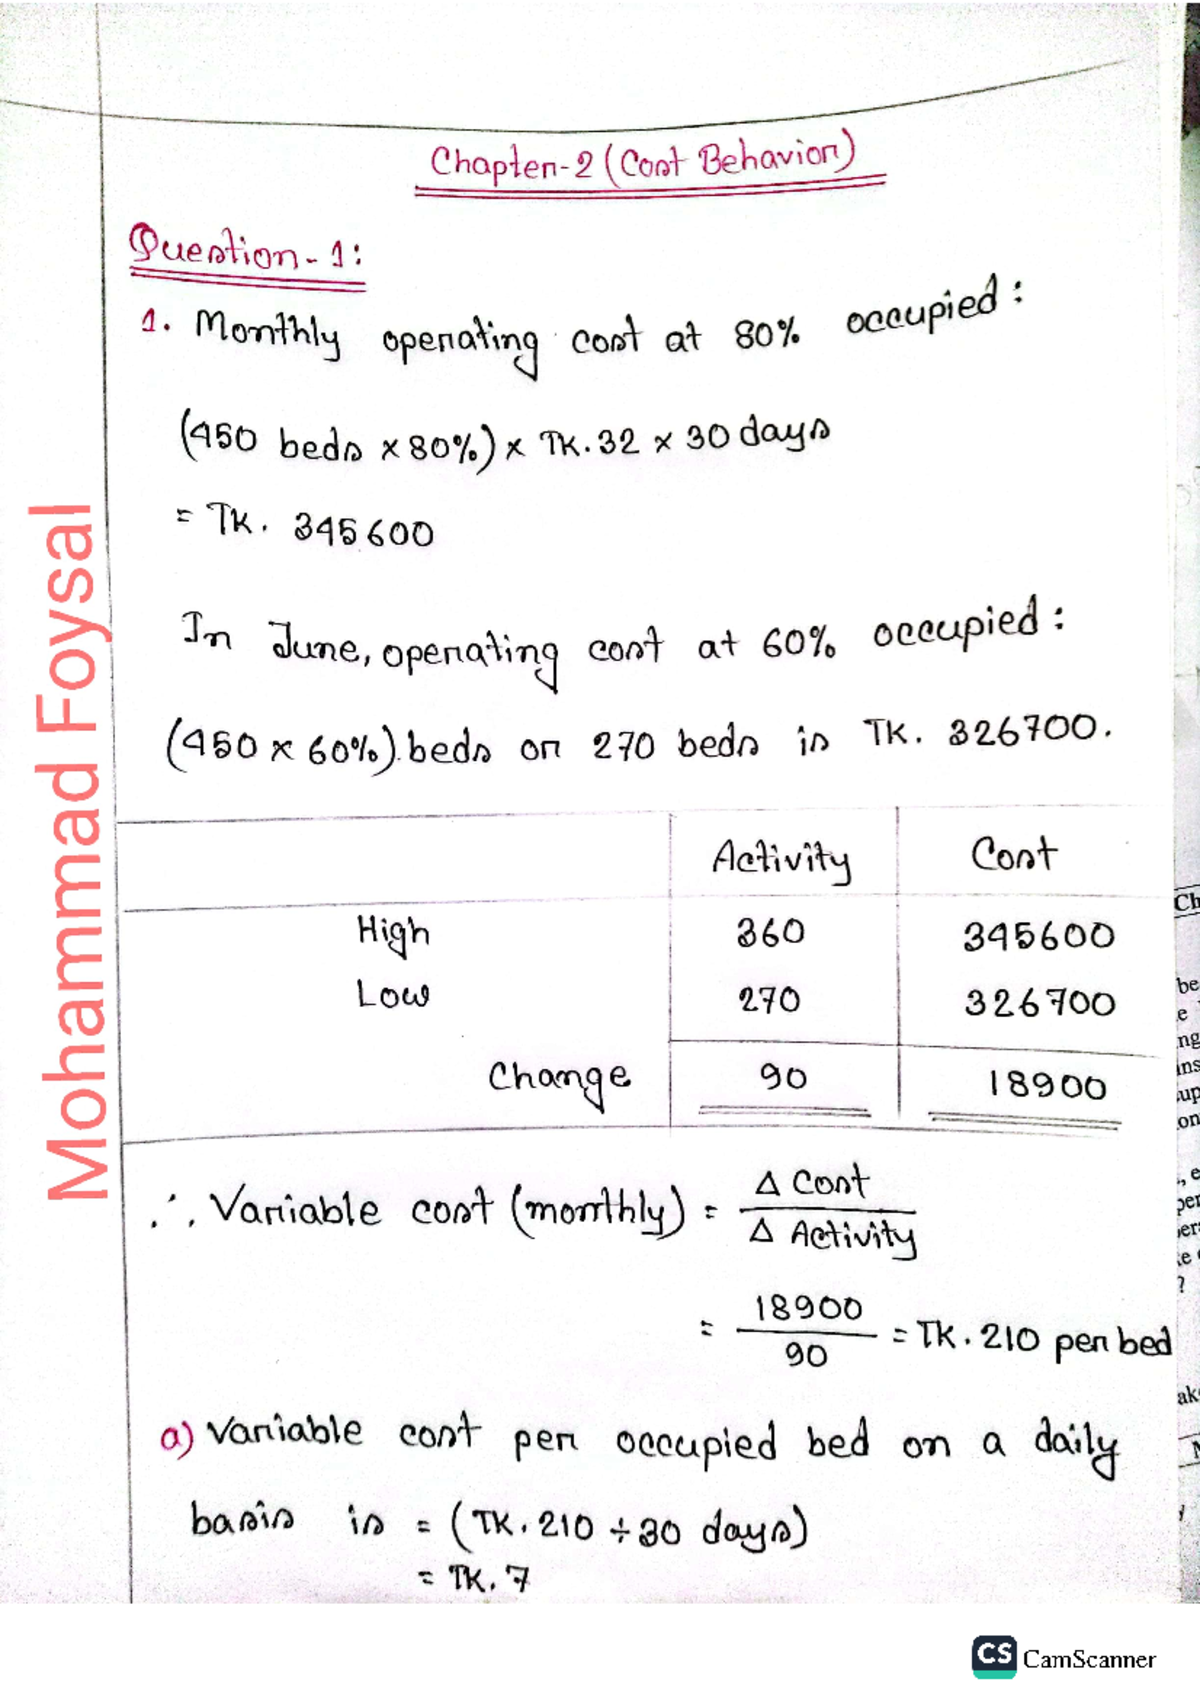 Chapter-2 (Cost Behavior)
Question-1:
1. Monthly operating cost at 80% occupied:
(450 beds × 80%) × TK. 32 × 30 days
= TK. 345600
In June, operating cost at 60% occupied:
(450 × 60%) beds or 270 beds is TK. 326700.
Activity Cost
High 360 345600
Low 270 326700
Change 90 18900
∴ Variable cost (monthly) = Δ Cost / Δ Activity
= 18900 / 90 = TK. 210 per bed
a) Variable cost per occupied bed on a daily
basis is = (TK. 210 ÷ 30 days)
= TK. 7
Mohammad Foysal
CS CamScanner